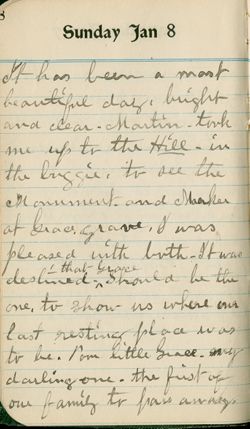 8
Sunday Jan 8
It has been a most
beautiful day, bright
and clear - Martin - took
me up to the Hill - in
the buggie, to see the
Monument and Marker
at Grace, grave, I was
pleased with both - It was
destined - that Grace - should be the
one, to show us where our
last resting place was
to be. Poor little Grace - my
darling one - the first of
our family to pass away.